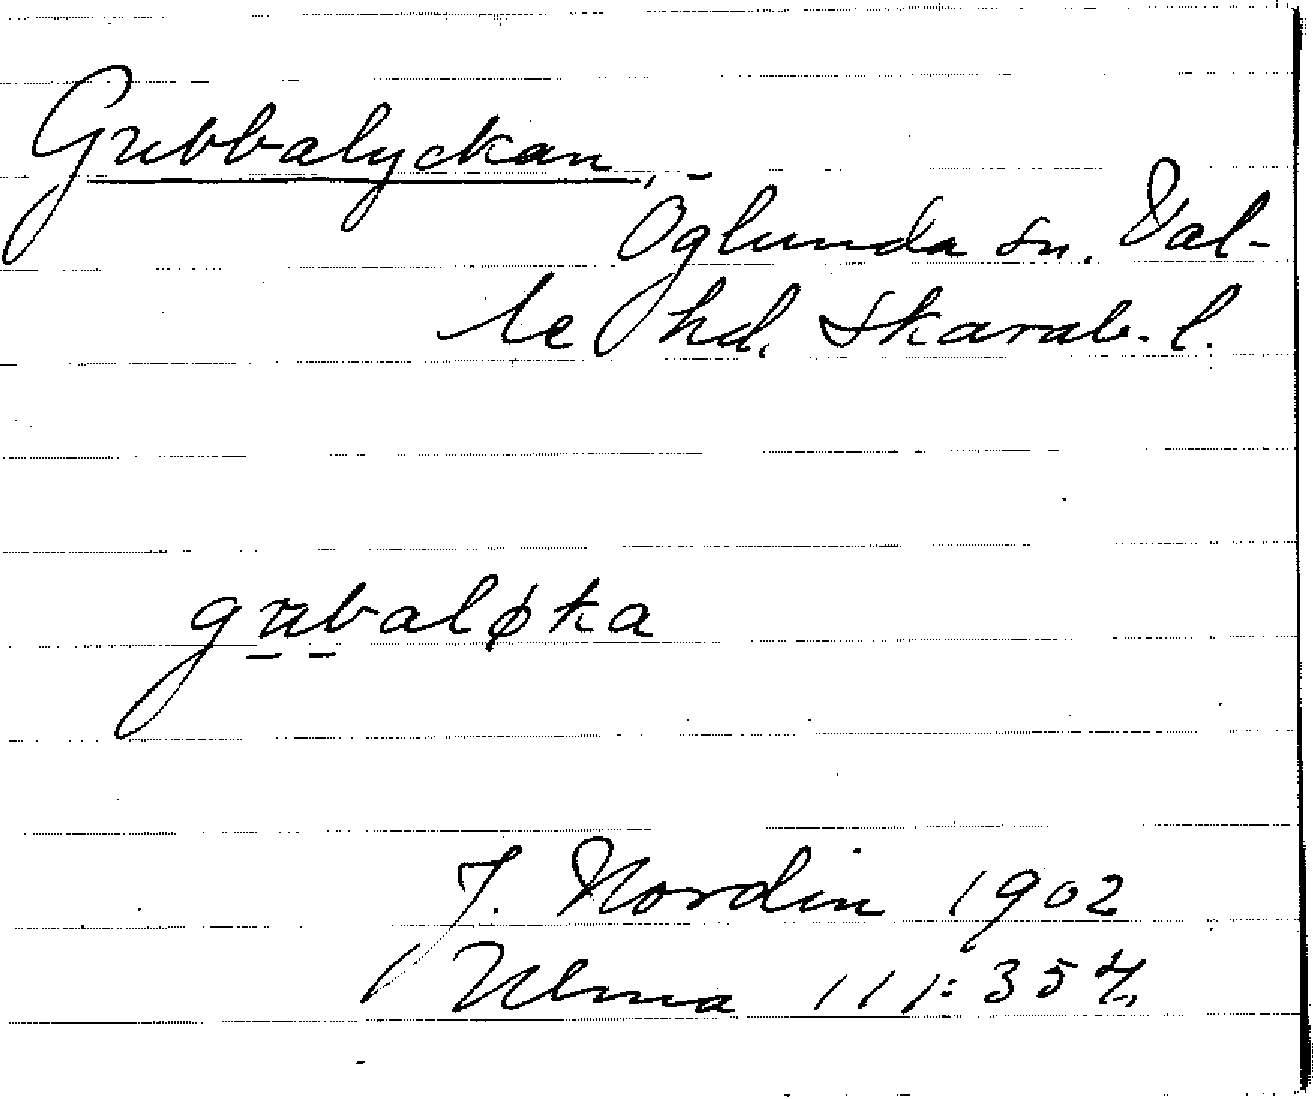 Grubbalyckan,
Öglunda sn. Val-
le hd. Skarab. l.
grubaløka
J. Nordin 1902
Ulma 111:354